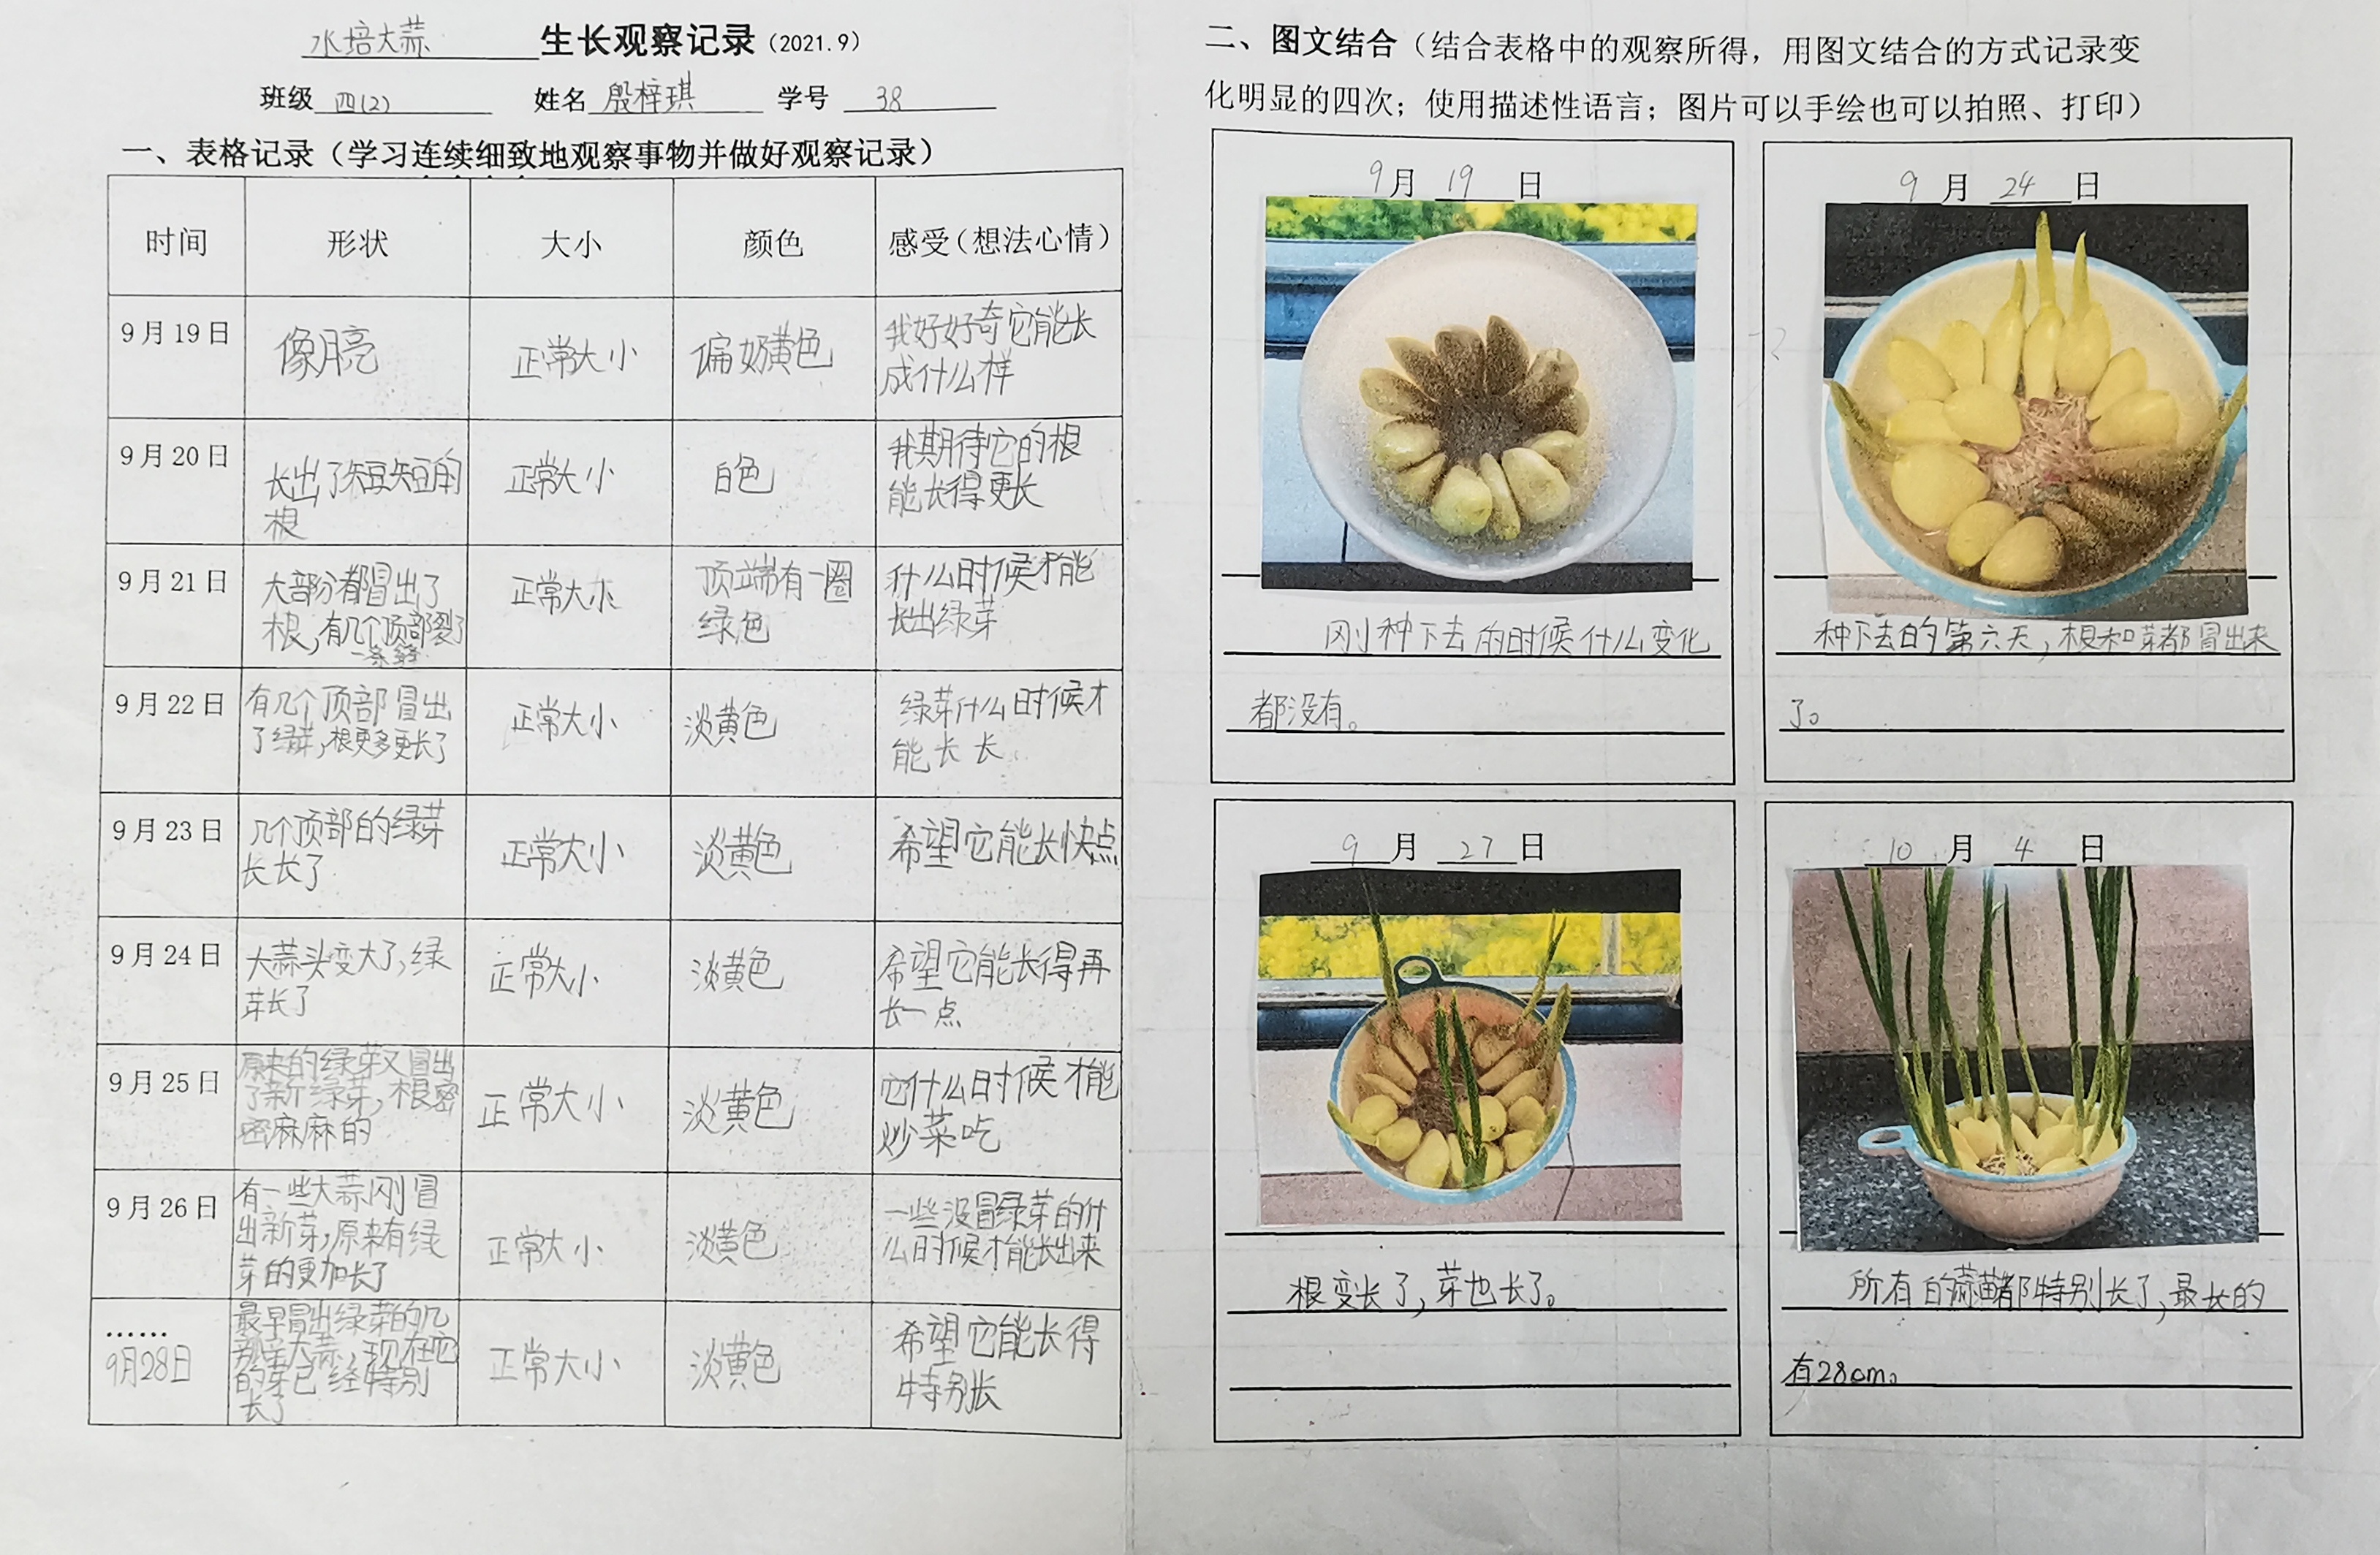 水培大蒜 生长观察记录（2021.9）
班级 四(2) 姓名 殷梓琪 学号 38
一、表格记录（学习连续细致地观察事物并做好观察记录）
时间 形状 大小 颜色 感受（想法心情）
9月19日 像月亮 正常大小 偏奶黄色 我好好奇它能长
成什么样
9月20日 长出了短短的
根 正常大小 白色 我期待它的根
能长得更长
9月21日 大部分都冒出了
根,有几个顶部裂了
一条缝 正常大小 顶端有一圈
绿色 什么时候才能
长出绿芽
9月22日 有几个顶部冒出
了绿芽,根更多更长了 正常大小 淡黄色 绿芽什么时候才
能长长
9月23日 几个顶部的绿芽
长长了 正常大小 淡黄色 希望它能长快点
9月24日 大蒜头变大了,绿
芽长了 正常大小 淡黄色 希望它能长得再
长一点
9月25日 原来的绿芽又冒出
了新绿芽,根密
密麻麻的 正常大小 淡黄色 它什么时候才能
炒菜吃
9月26日 有一些大蒜刚冒
出新芽,原来有绿
芽的更加长了 正常大小 淡黄色 一些没冒绿芽的什
么时候才能长出来
……
9月28日 最早冒出绿芽的几
大蒜,现在它
的芽已经特别
长了 正常大小 淡黄色 希望它能长得
特别长
二、图文结合（结合表格中的观察所得，用图文结合的方式记录变
化明显的四次；使用描述性语言；图片可以手绘也可以拍照、打印）
9月19日
刚种下去的时候什么变化
都没有。
9月24日
种下去的第六天,根和芽都冒出来
了。
9月27日
根变长了,芽也长了。
10月4日
所有的蒜苗都特别长了,最长的
有28cm。